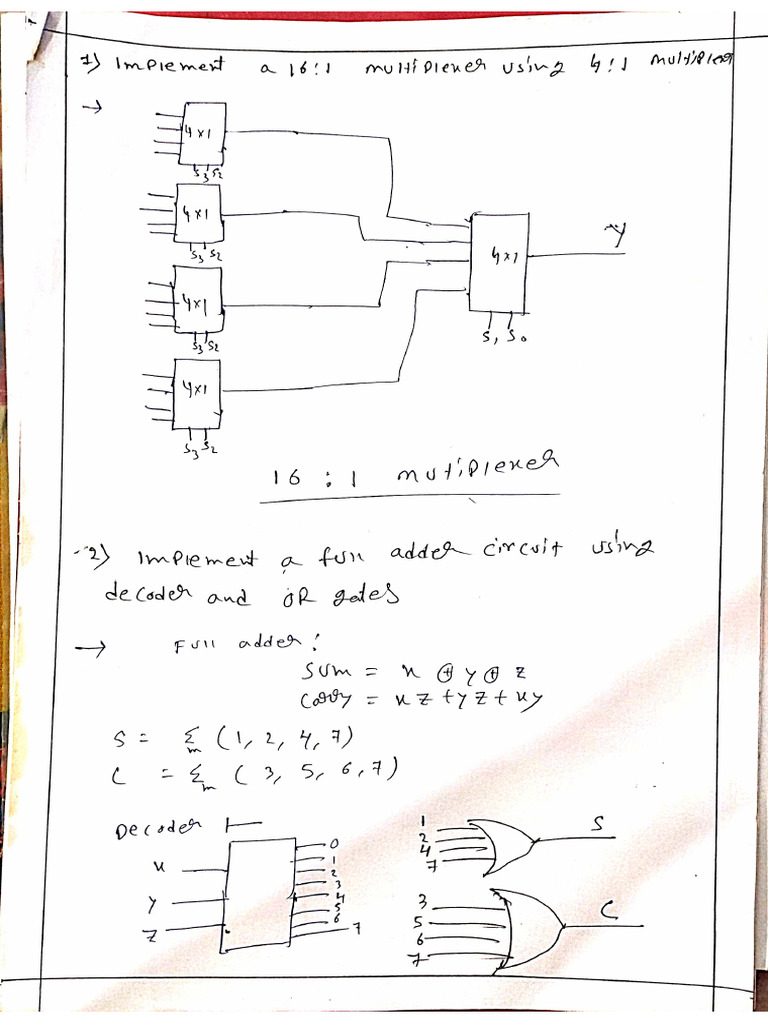 1) Implement a 16:1 multiplexer using 4:1 multiplexer
→
4x1
S3 S2
4x1
S3 S2
4x1
S3 S2
4x1
S3 S2
4x1
S1 S0
Y
16 : 1 mutiplexer
2) Implement a full adder circuit using
decoder and OR gates
→ Full adder :
Sum = x ⊕ y ⊕ z
Carry = xz + yz + xy
S = Σm (1, 2, 4, 7)
C = Σm ( 3, 5, 6, 7)
Decoder
x
y
z
0
1
2
3
4
5
6
7
1
2
4
7
S
3
5
6
7
C